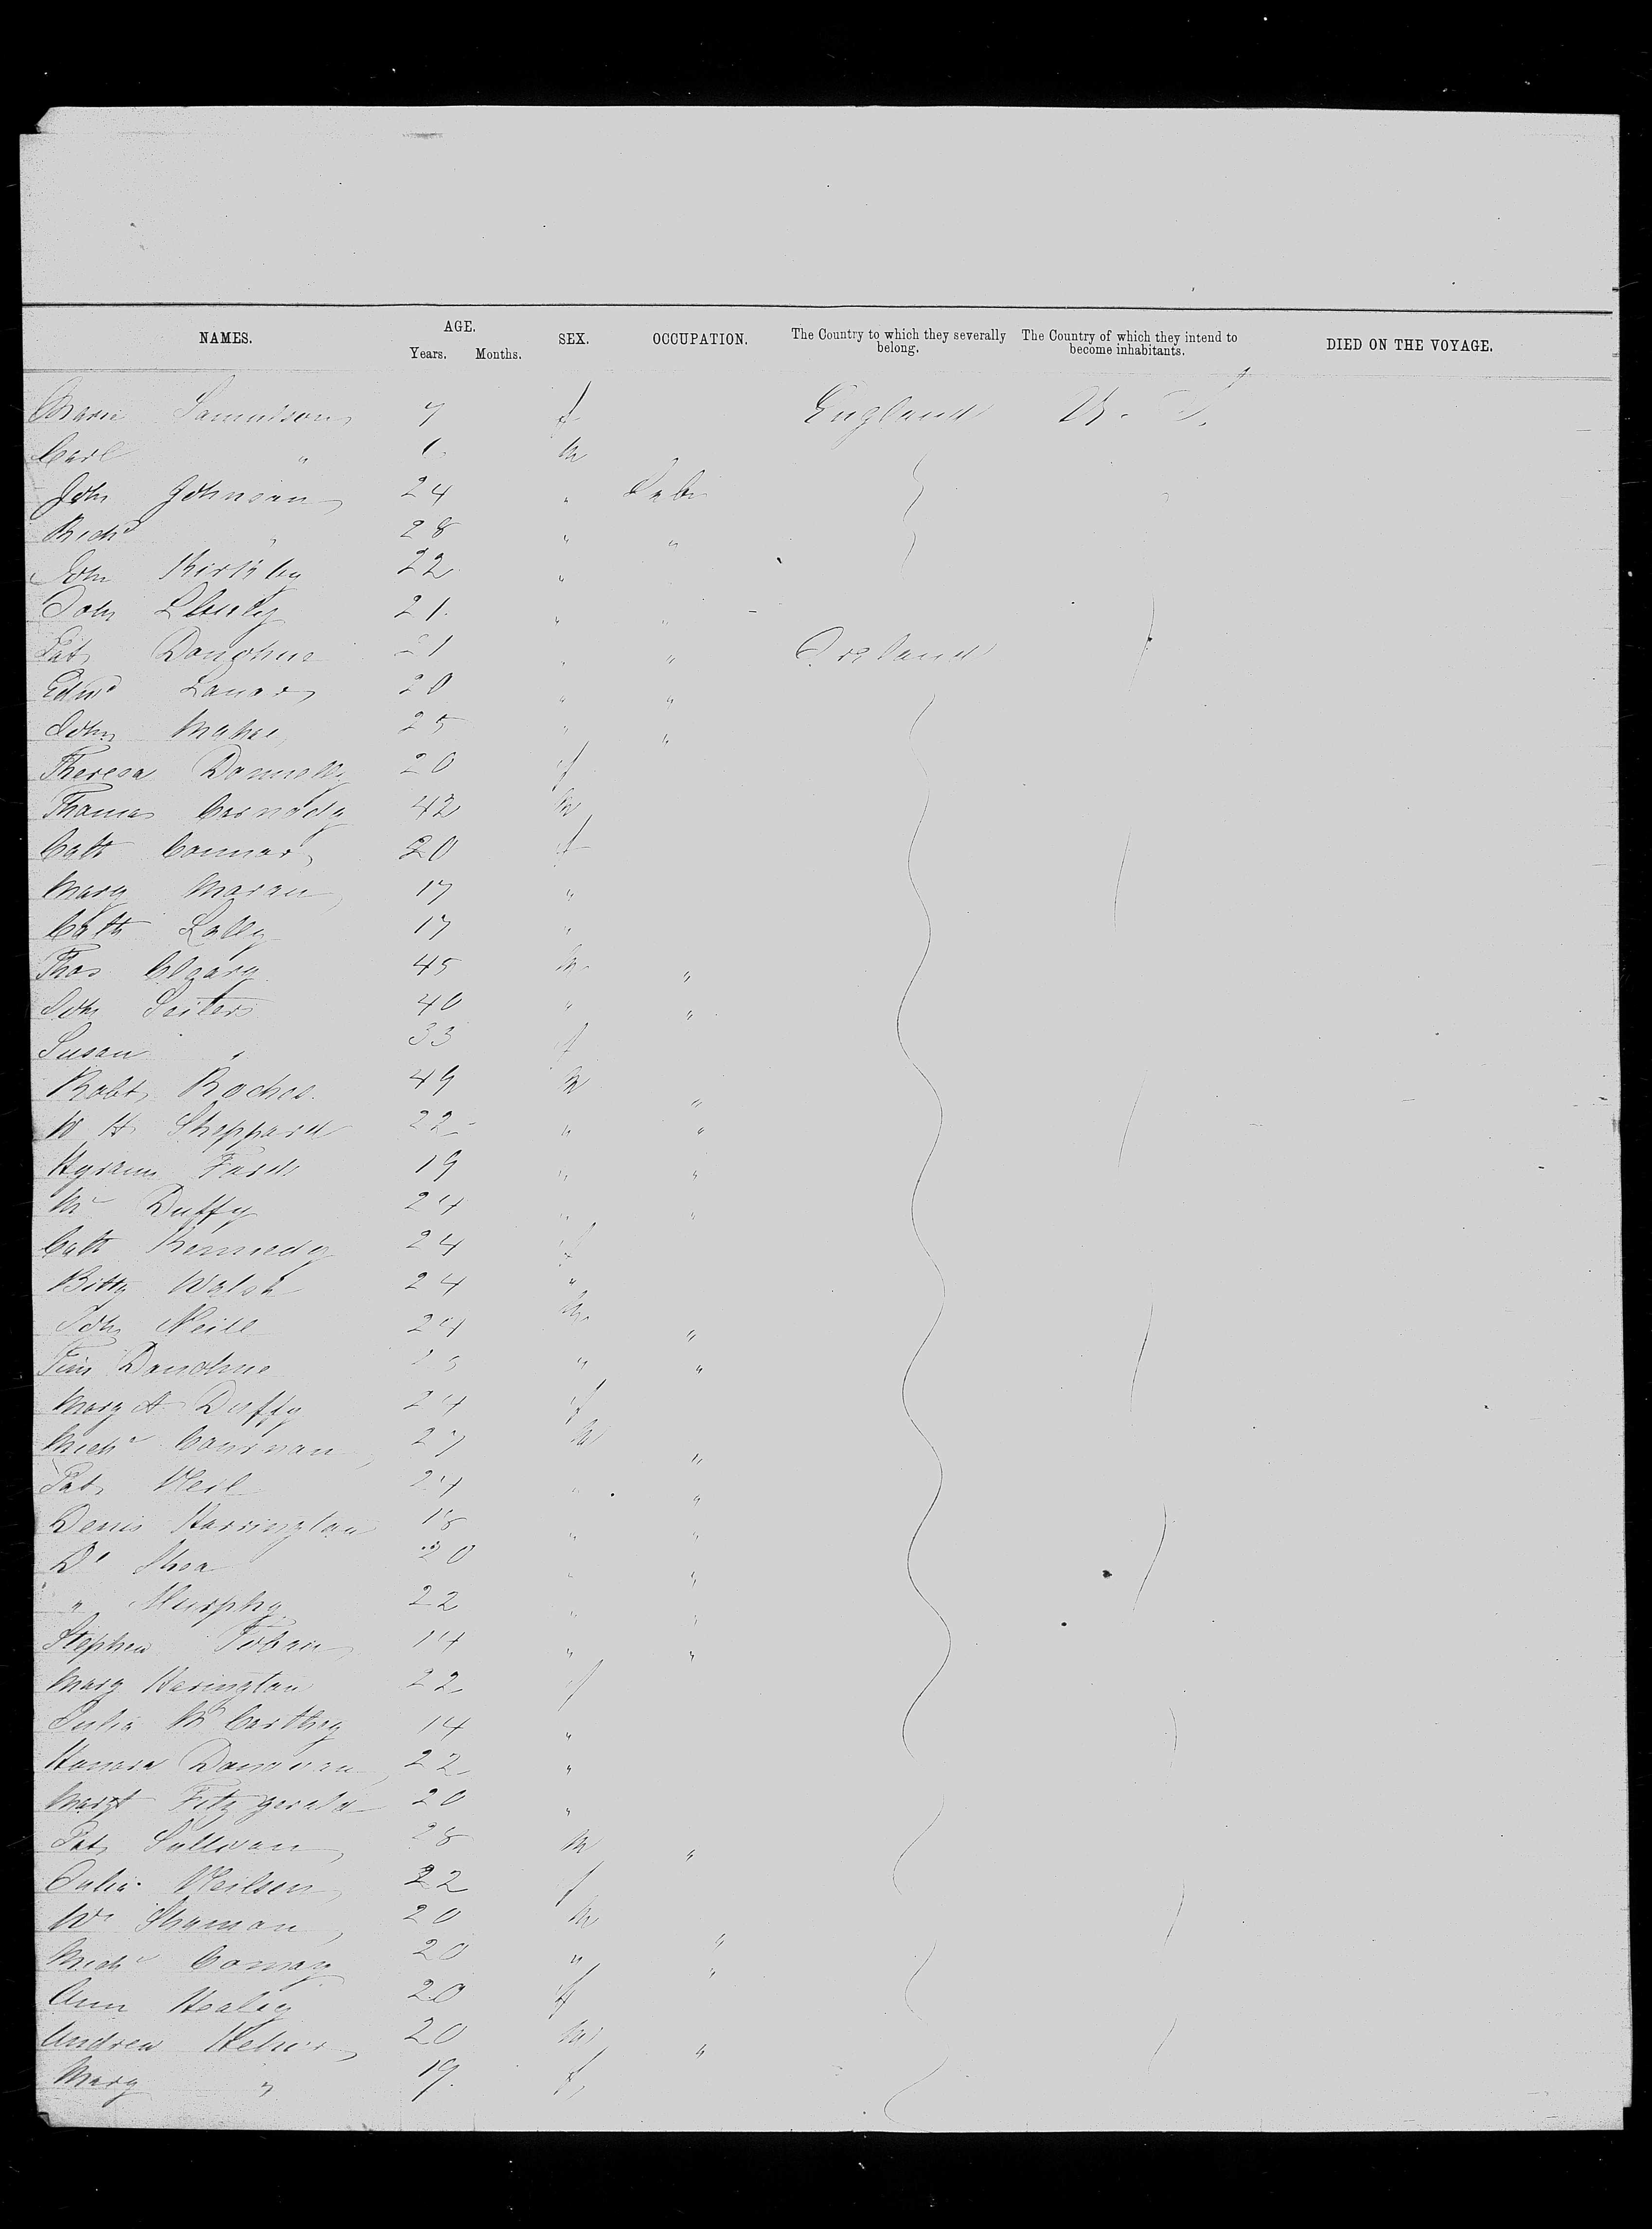 NAMES. AGE. SEX. OCCUPATION. The Country to which they severally belong. The Country of which they intend to become inhabitants. DIED ON THE VOYAGE.
Years. Months.
Marie 7 f England U. S.
Carl " m
John Johnson 24 " Labr
Richd " 28 " "
John 22 "
John 21 " "
Pat Donohue 21 " " Ireland
Edwd 20 " "
John Maher 25 " "
Theresa Donnelly 20 f
Thomas Carmody 42 m
Cath Connor 20 f
Mary Moran 17 "
Cath Lally 17 "
Thos Cleary 45 m "
John 40 " "
Susan " 33 f
Robt Roches 49 m "
W H Sheppard 22 " "
Hyram Fords 19 " "
Duffy 24 " "
Cath Kennedy 24 f
Bitty Walsh 24 "
John Neill 24 m "
Tim Donohue " "
Mary A Duffy 24 f
Michl 27 m "
Pat Neil 24 " "
Denis Harrington 18 " "
Dl Shea 20 " "
" Murphy 22 " "
Stephen 14 " "
Mary Harington 22 f
Julia McCarthy 14 "
Honora Donovan 22 "
Margt Fitzgerald 20 "
Pat Sullivan 28 m "
Julia Neilson 22 f
Wm 20 m "
Michl 20 " "
Ann Healey 20 f
Andrew 20 m "
Mary " 19 f